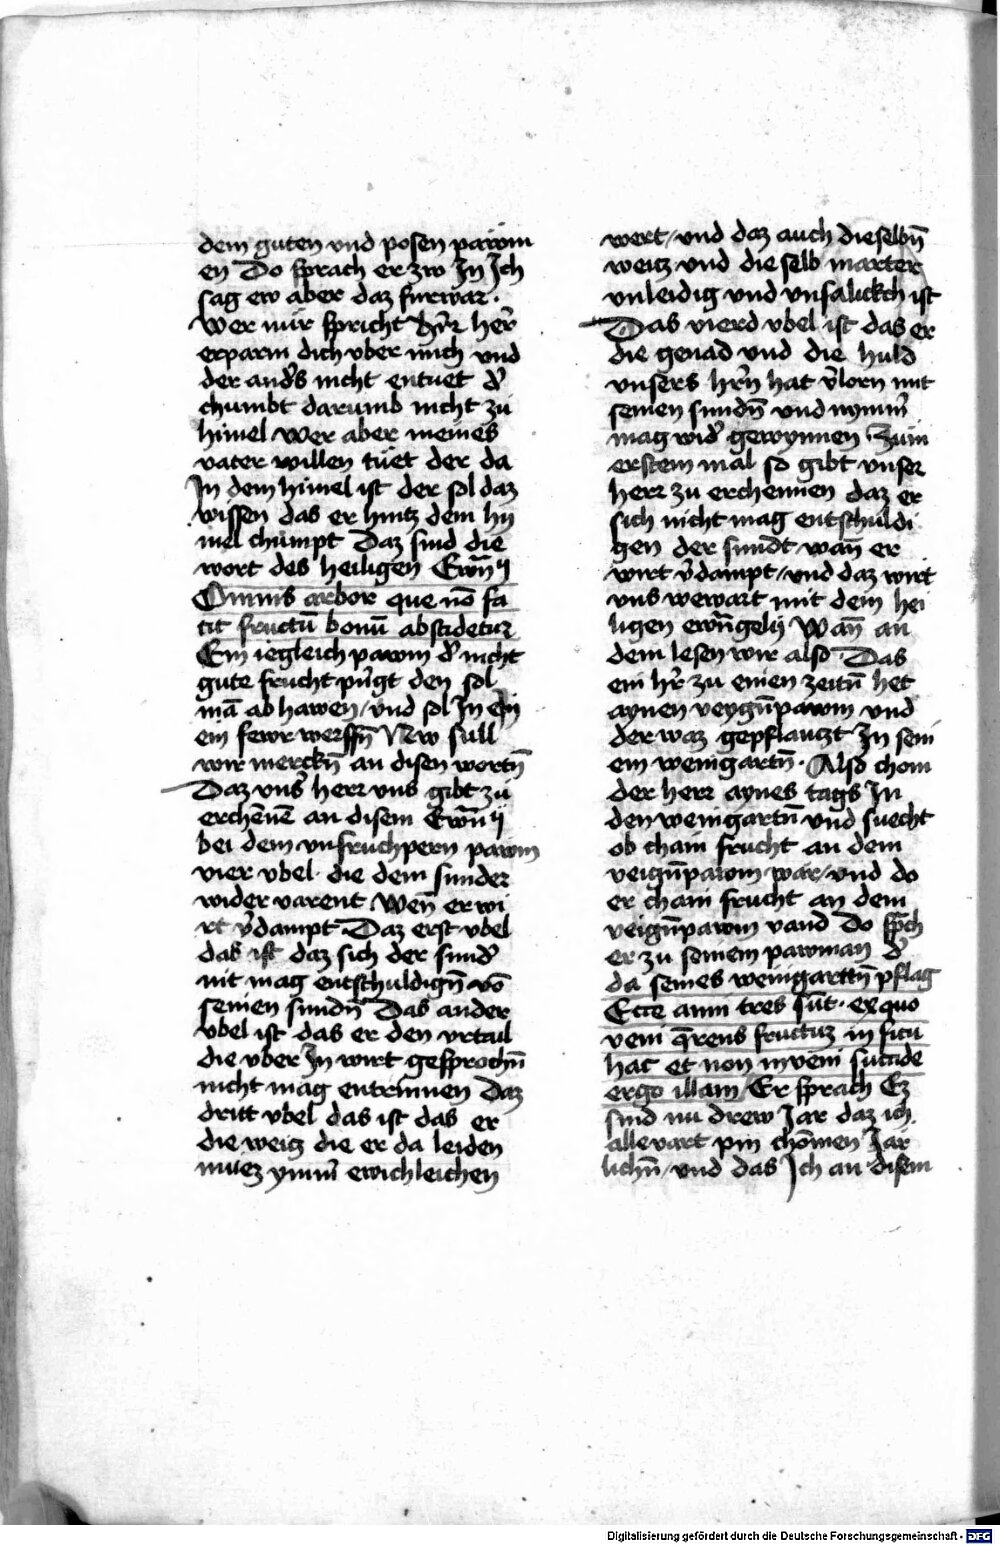 dem guten vnd posen pawm
en Do sprach er zw In Ich
sag ew aber daz furwar ·
Wer mir spricht h̄r herr̄
erparm dich vber mich vnd
der anders nicht entuet d̓
chumbt darumb nicht zu
himel Wer aber meines
vater willen tuet der da
In dem himel ist der sol daz
wissen das er hintz dem hy
mel chumpt Daz sind die
wort des heiligen Ewn̄ij
Omnis arbor que nō fa
cit fructū bonū abscidetur
Ein iegleich pawm d̓ nicht
gute frucht pringt den sol
mā ab hawen / vnd sol In
ein fewr werffn̄ New sull
wir merckn̄ an disen wortn̄
Daz vns̓ herr vns gibt zu
erchēnē an disem Ewn̄ij
bei dem vnfruchpern pawm
vier vbel · die dem sunder
wider varent Wen̄ er wi
rt v̓dampt Daz erst vbel
das ist daz sich der sund̓
nit mag entschuldign̄ vō
seinen sundn̄ Das ander
vbel ist das er den vrtail
die vber In wirt gesprochn̄
nicht mag entrinnen Daz
dritt vbel das ist das er
die weiz die er da leiden
muez ymm̓ ewichleichen
wert / vnd daz auch dieselbn̄
weitz vnd die selb marter
vnleidig vnd vnsalickch ist
Das vierd vbel ist das er
die genad vnd die huld
vnsers hr̄n hat v̓lorn mit
seinen sundn̄ vnd nymm̓
mag wid̓ gewynnen · Zum
erstem mal so gibt vnser
herr zu erchennen daz er
sich nicht mag entschuldi
gen der sundt wan̄ er
wirt v̓dampt / vnd daz wirt
vns wewart mit dem hei
ligen ewn̄gelij Wan̄ an
dem lesen wir also · Das
ein hr̄ zu einen zeitn̄ het
aynen veygn̄pawm vnd
der waz gepflanczt In sein
em weingartn̄ · Also chom
der herr aynes tags In
den weingartn̄ vnd suecht
ob chain frucht an dem
veign̄pawm wär / vnd do
er chain frucht an dem
veign̄pawm vand Do sp̄ch
er zu seinem pawman d̓
da seines weingarttn̄ pflag
Ecce anni tres sūt · ex quo
veni q̄rens fructuz in ficu
hac et non inveni succide
ergo illam / Er sprach Ez
sind nu drew Jar daz ich
alle vart pin chōmen Jar
lichn̄ / vnd das Ich an disem
Digitalisierung gefördert durch die Deutsche Forschungsgemeinschaft - DFG